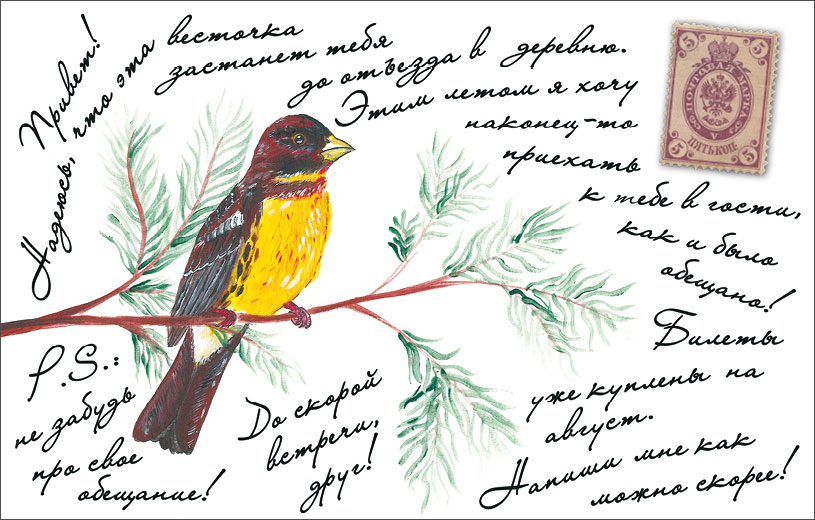 Привет!
Надеюсь, что эта весточка
застанет тебя
до отъезда в деревню.
Этим летом я хочу
наконец-то
приехать
к тебе в гости,
как и было
обещано!
Билеты
уже куплены на
август.
Напиши мне как
можно скорее!
До скорой
встречи,
друг!
P.S.:
не забудь
про свое
обещание!
5 5
ПОЧТОВАЯ МАРКА
V
ПЯТЬ КОП.
5 5